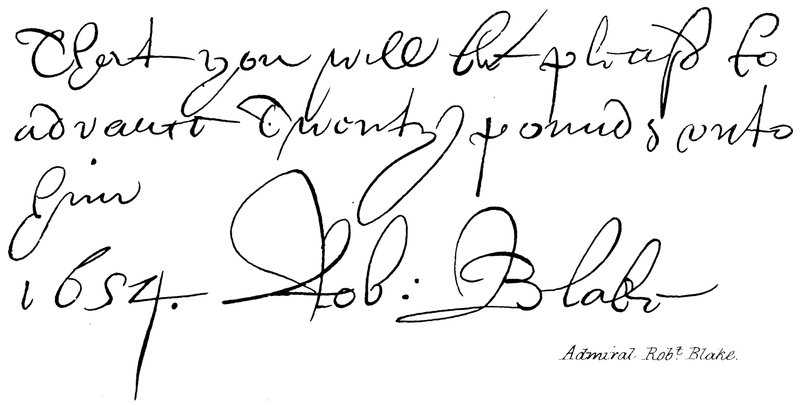 That you will be pleasd to
advance Twenty pounds vnto
him
1654. Rob: Blake
Admiral Robt. Blake.